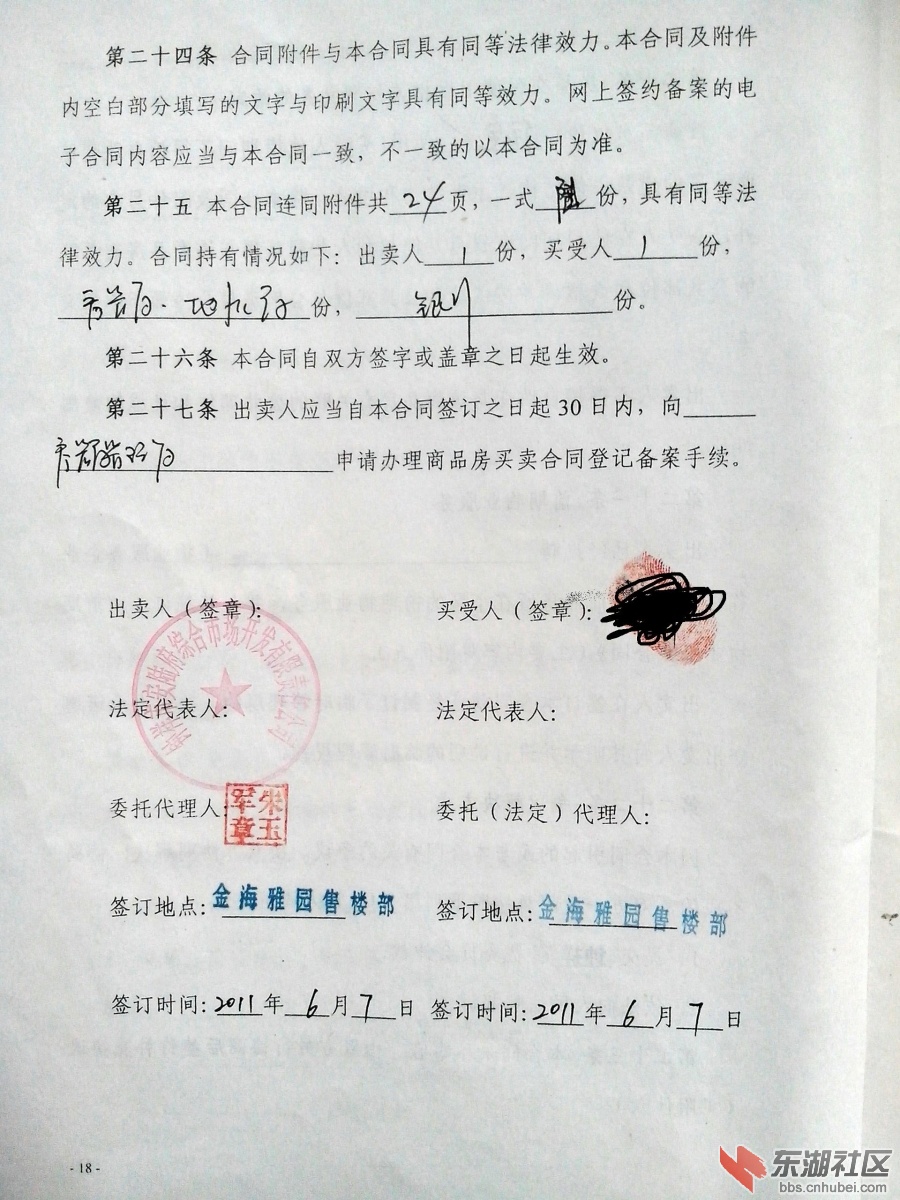 第二十四条 合同附件与本合同具有同等法律效力。本合同及附件
内空白部分填写的文字与印刷文字具有同等效力。网上签约备案的电
子合同内容应当与本合同一致，不一致的以本合同为准。
第二十五 本合同连同附件共24页，一式 份，具有同等法
律效力。合同持有情况如下：出卖人 1 份，买受人 1 份，
份， 银行 份。
第二十六条 本合同自双方签字或盖章之日起生效。
第二十七条 出卖人应当自本合同签订之日起 30 日内，向
申请办理商品房买卖合同登记备案手续。
出卖人（签章）： 买受人（签章）：
安陆府综合市场开发有限责任公司
法定代表人： 法定代表人：
委托代理人： 委托（法定）代理人：
朱玉军章
签订地点：金海雅园售楼部 签订地点：金海雅园售楼部
签订时间：2011年 6 月 7 日 签订时间：2011年 6 月 7 日
- 18 -
东湖社区
bbs.cnhubei.com